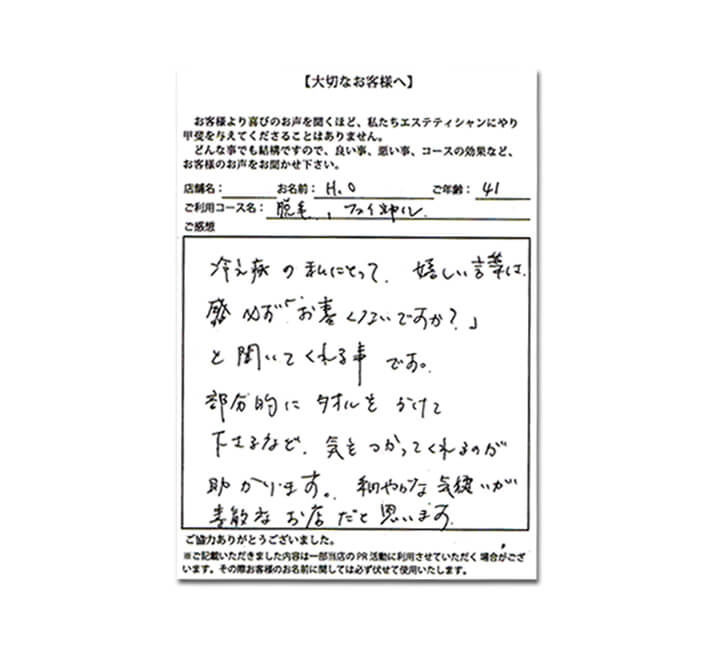 【大切なお客様へ】
お客様より喜びのお声を聞くほど、私たちエステティシャンにやり
甲斐を与えてくださることはありません。
どんな事でも結構ですので、良い事、悪い事、コースの効果など、
お客様のお声をお聞かせ下さい。
店舗名： お名前： H.O ご年齢： 41
ご利用コース名： 脱毛、フェイシャル
ご感想
冷え症の私にとって、嬉しい言葉は、
必ず「お寒くないですか？」
と聞いてくれる事です。
部分的にタオルをかけて
下さるなど、気をつかってくれるのが
助かります。和やかな気遣いが
素敵なお店だと思います
ご協力ありがとうございました。
※ご記載いただきました内容は一部当店のPR活動に利用させていただく場合がござ
います。その際お客様のお名前に関しては必ず伏せて使用いたします。